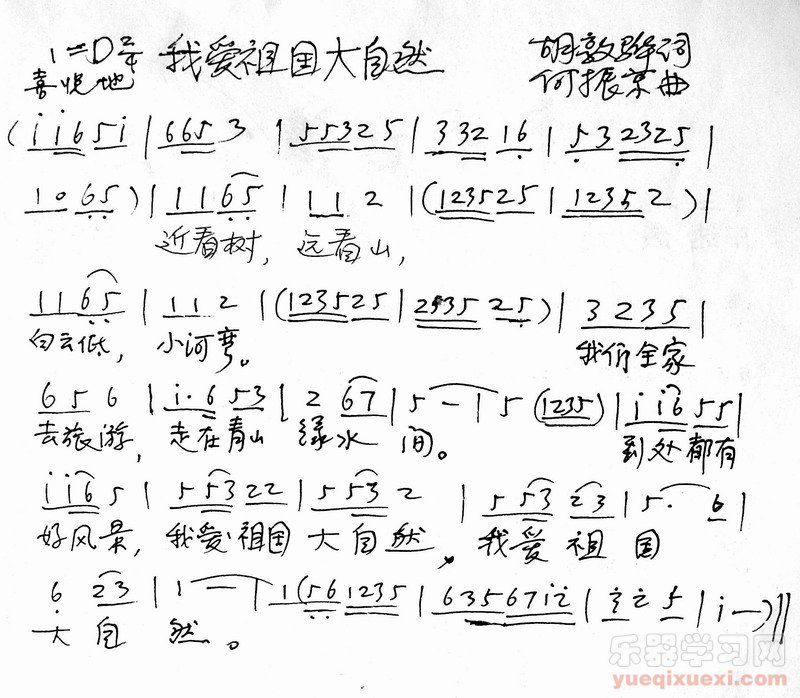 1=D 2/4 我爱祖国大自然 胡敦骅词
喜悦地 何振京曲
(i i 6 5 i | 6 6 5 3 | 5 5 3 2 5 | 3 3 2 1 6 | 5 3 2 3 2 5 |
1 0 6 5) | 1 1 6 5 | 1 1 2 | (1 2 3 5 2 5 | 1 2 3 5 2) |
近看树, 远看山,
1 1 6 5 | 1 1 2 | (1 2 3 5 2 5 | 2 9 3 5 2 5) | 3 2 3 5 |
白云低, 小河弯。 我们全家
6 5 6 | i· 6 5 3 | 2 6 7 | 5 - | 5 (1 2 3 5) | i i 6 5 5 |
去旅游, 走在青山 绿水 间。 到处都有
i i 6 5 | 5 5 3 2 2 | 5 5 3 2 | 5 5 3 2 3 | 5· 6 |
好风景, 我爱祖国 大自然, 我爱祖国
6 2 3 | 1 - | 1 (5 6 1 2 3 5 | 6 3 5 6 7 i 2 | 3 2 5 | i -) ||
大自 然。
乐器学习网
yueqixuexi.com